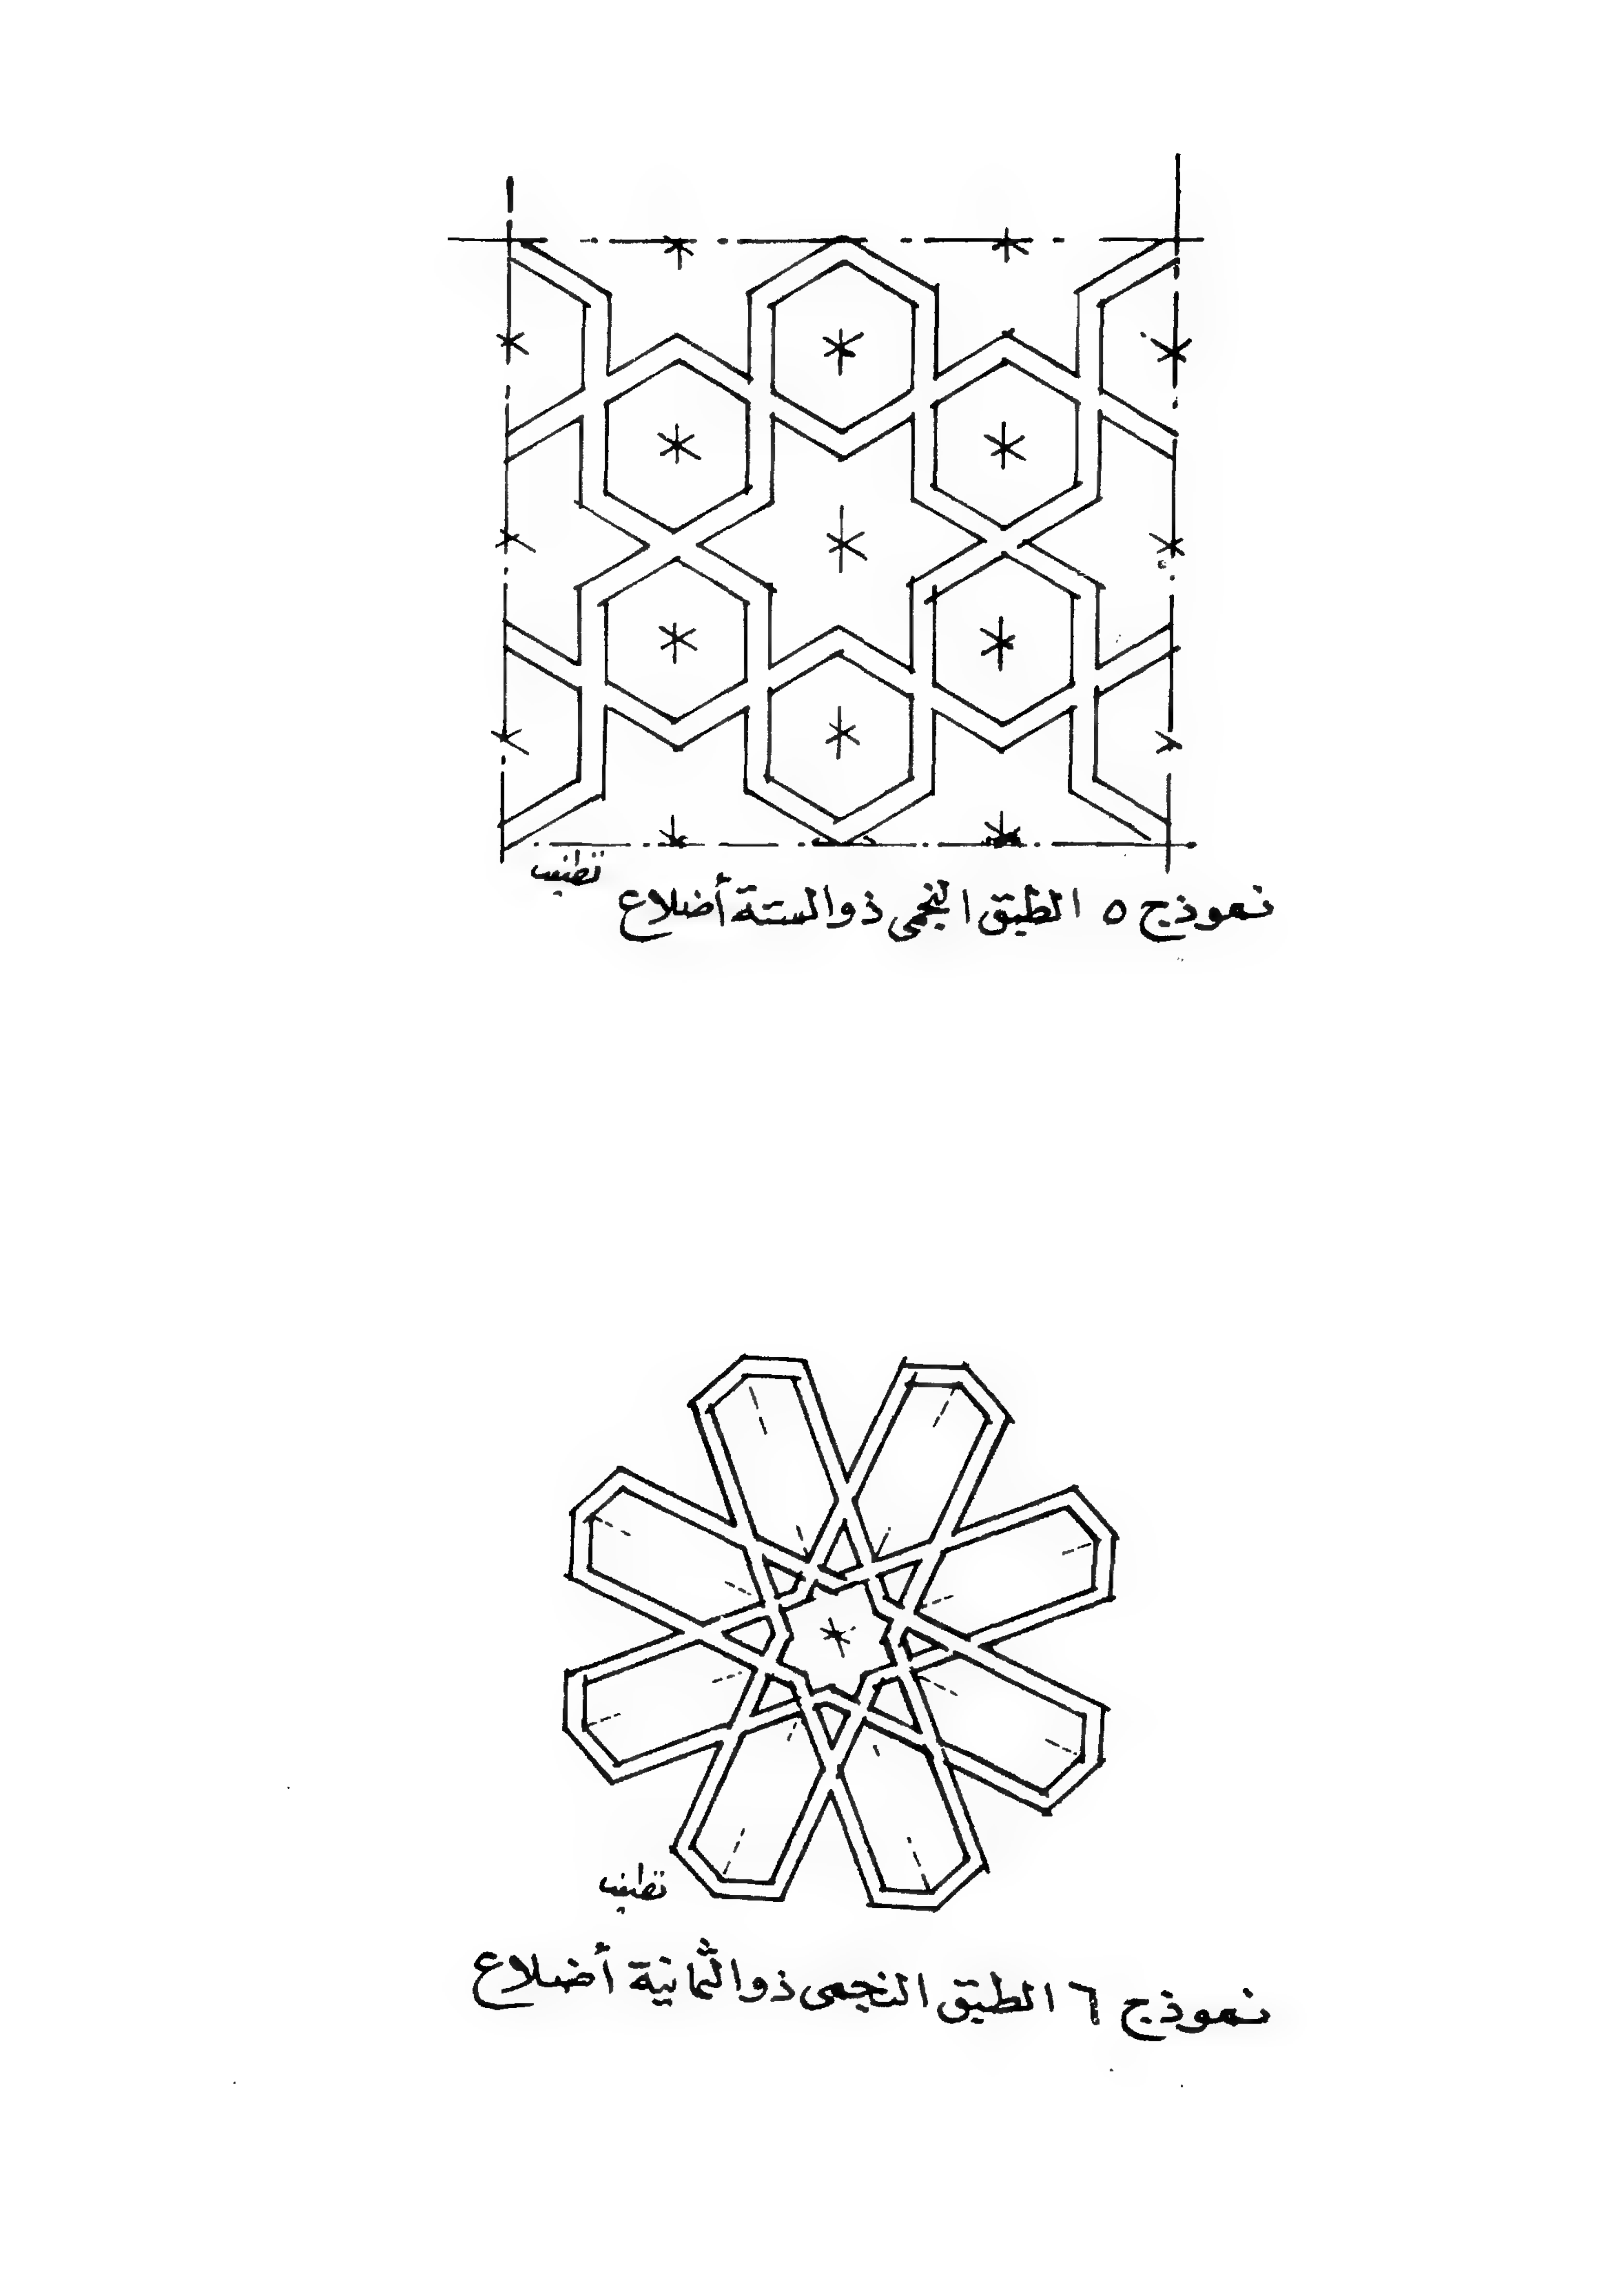 نموذج ٥ الطبق النجمى ذو الستة أضلاع
نموذج ٦ الطبق النجمى ذو الثمانية أضلاع